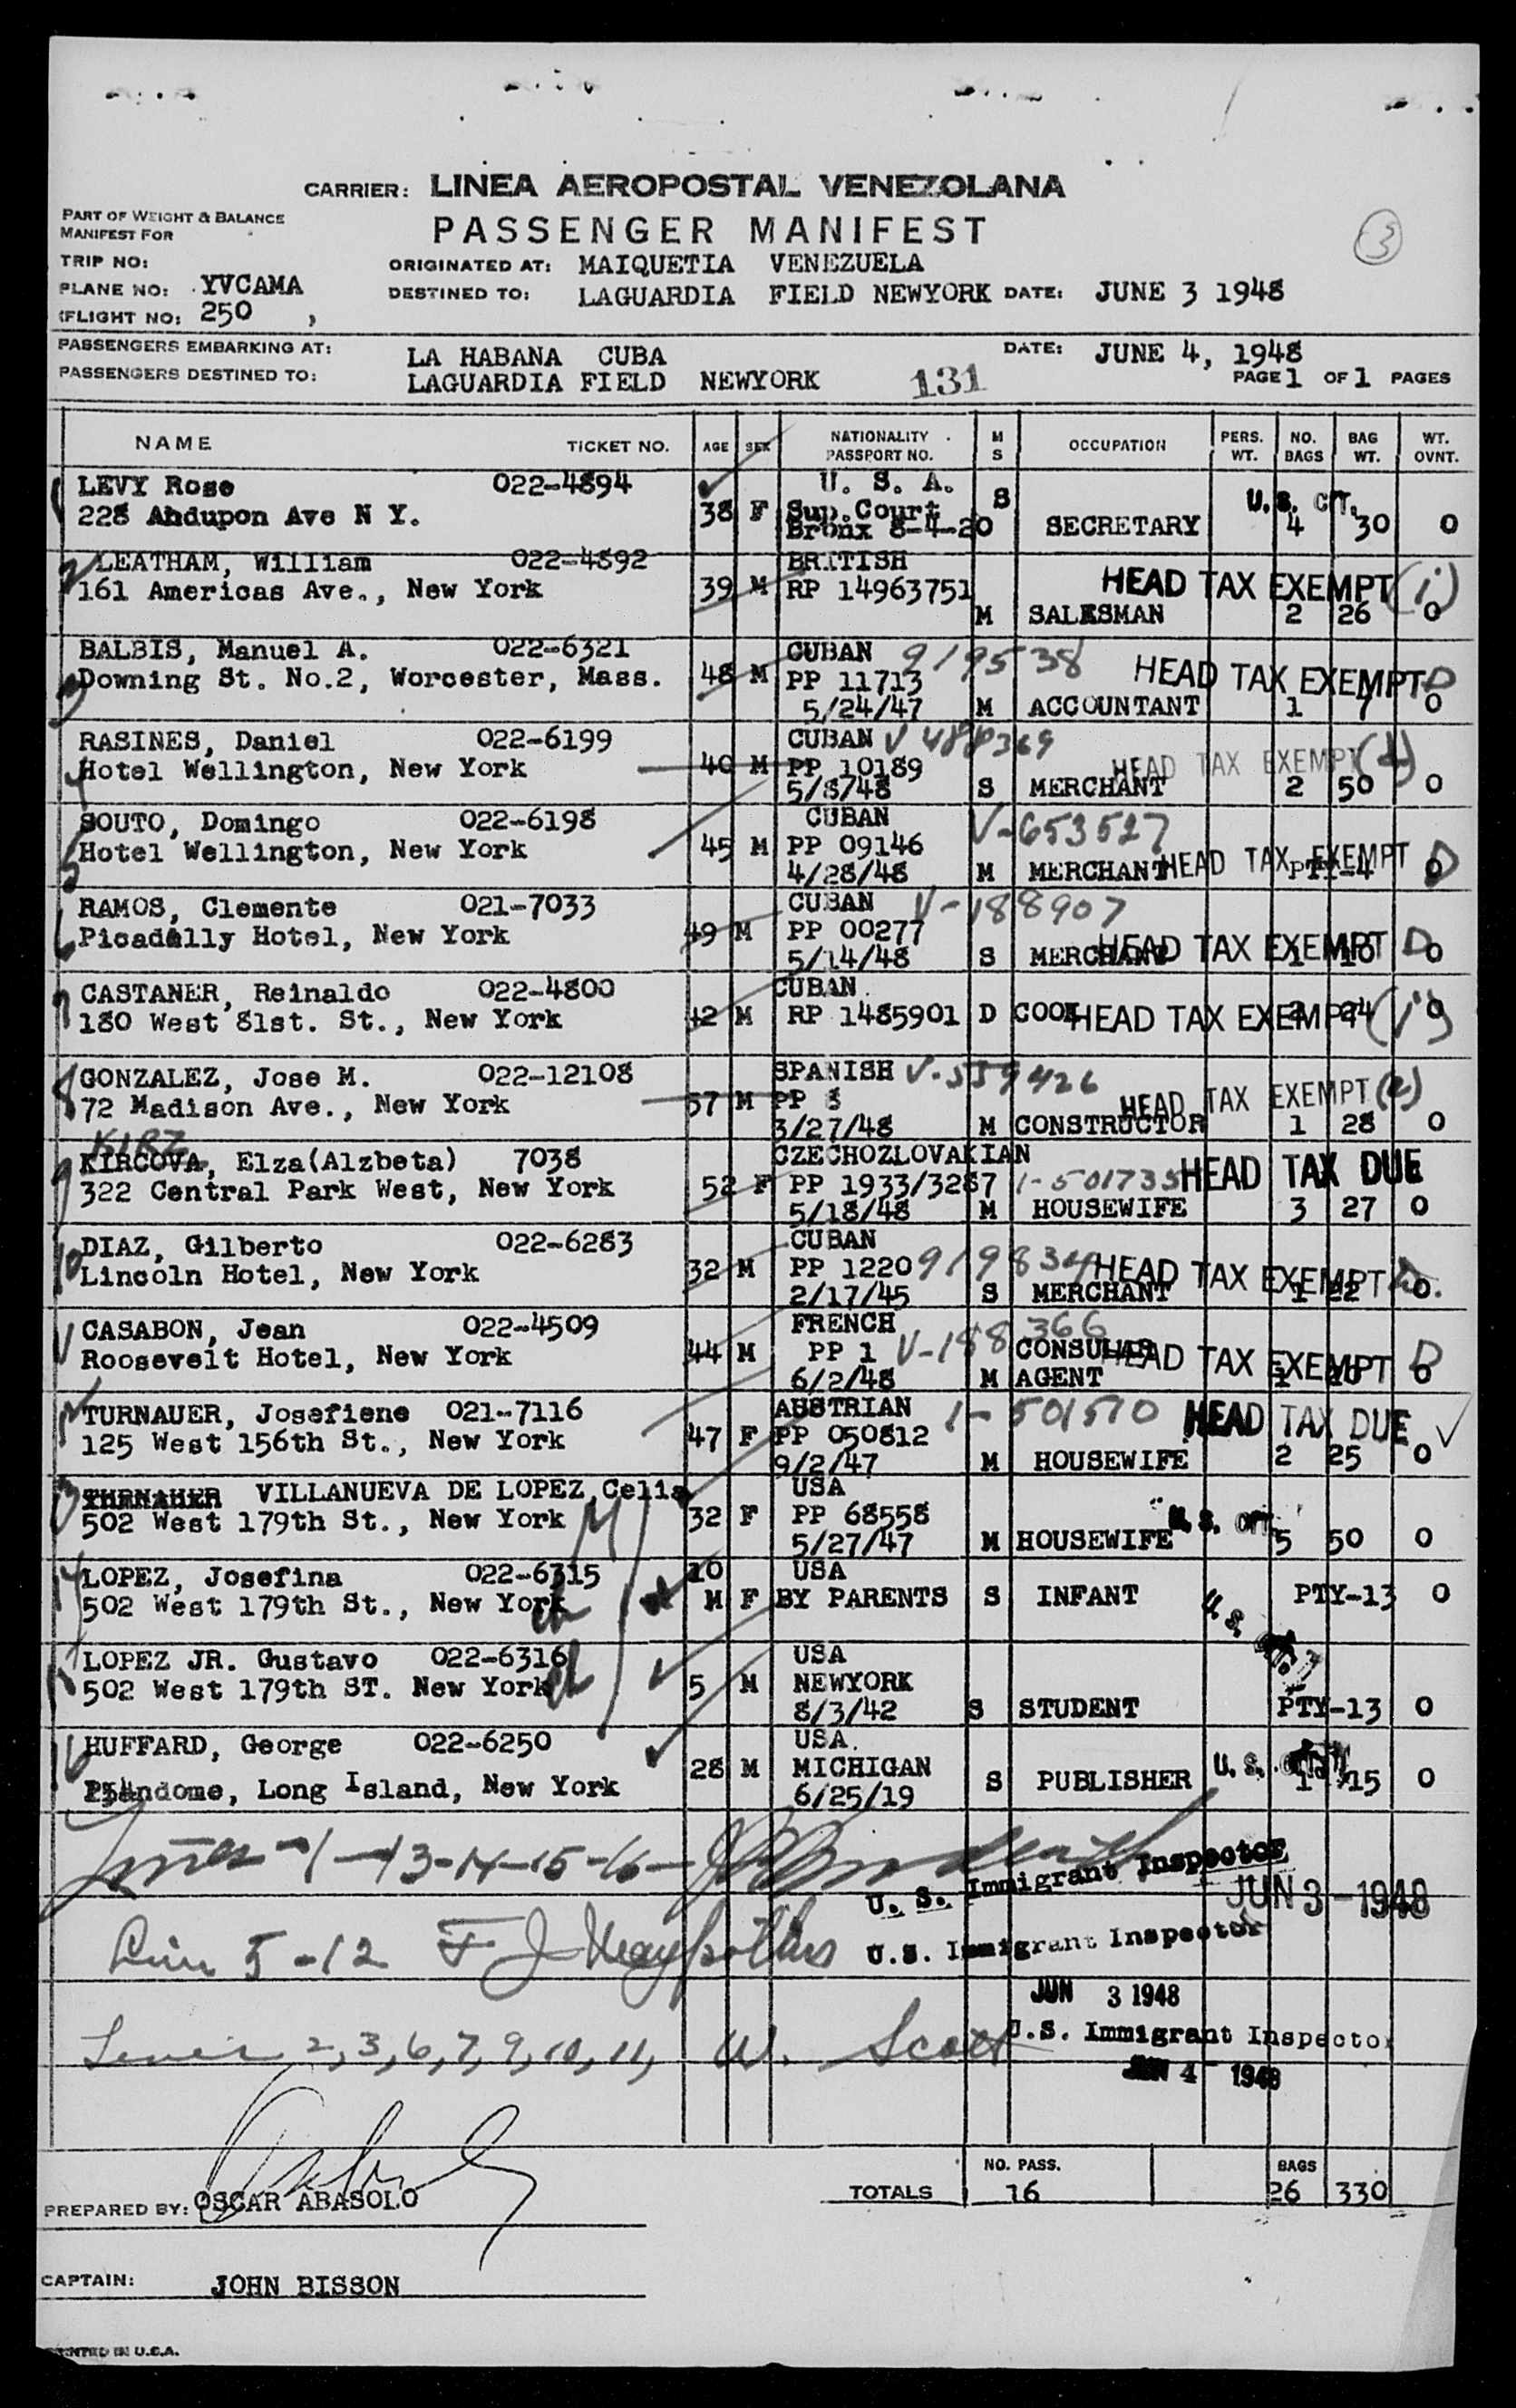 CARRIER: LINEA AEROPOSTAL VENEZOLANA
PART OF WEIGHT & BALANCE
MANIFEST FOR
PASSENGER MANIFEST
3
TRIP NO:
ORIGINATED AT: MAIQUETIA VENEZUELA
PLANE NO: YVCAMA
DESTINED TO: LAGUARDIA FIELD NEWYORK DATE: JUNE 3 1948
FLIGHT NO: 250 ,
PASSENGERS EMBARKING AT: LA HABANA CUBA DATE: JUNE 4, 1948
PASSENGERS DESTINED TO: LAGUARDIA FIELD NEWYORK 131 PAGE 1 OF 1 PAGES
NAME TICKET NO. AGE SEX NATIONALITY PASSPORT NO. M S OCCUPATION PERS. WT. NO. BAGS BAG WT. WT. OVNT.
1 LEVY Rose 022-4894 U. S. A. S U.S. CIT.
228 Ahdupon Ave N Y. 38 F Sup.Court
Bronx 8-4-20 SECRETARY 4 30 0
2 LEATHAM, William 022-4892 BRITISH
161 Americas Ave., New York 39 M RP 14963751 HEAD TAX EXEMPT (i)
M SALESMAN 2 26 0
BALBIS, Manuel A. 022-6321 CUBAN 919538
3 Downing St. No.2, Worcester, Mass. 48 M PP 11713 HEAD TAX EXEMPT D
5/24/47 M ACCOUNTANT 1 7 0
RASINES, Daniel 022-6199 CUBAN V 488369
4 Hotel Wellington, New York 40 M PP 10189 HEAD TAX EXEMPT
5/8/48 S MERCHANT 2 50 0
SOUTO, Domingo 022-6198 CUBAN V-653527
5 Hotel Wellington, New York 45 M PP 09146 HEAD TAX EXEMPT D
4/28/48 M MERCHANT PTY-4 0
RAMOS, Clemente 021-7033 CUBAN V-188907
6 Picadilly Hotel, New York 49 M PP 00277 HEAD TAX EXEMPT D
5/14/48 S MERCHANT 1 10 0
7 CASTANER, Reinaldo 022-4800 CUBAN
180 West 81st. St., New York 42 M RP 1485901 D COOK HEAD TAX EXEMPT 2 24 0
8 GONZALEZ, Jose M. 022-12108 SPANISH V-559426
72 Madison Ave., New York 57 M PP 8 HEAD TAX EXEMPT
3/27/48 M CONSTRUCTOR 1 28 0
KIRZ
9 KIRCOVA, Elza(Alzbeta) 7038 CZECHOZLOVAKIAN
322 Central Park West, New York 52 F PP 1933/3287 1-501735 HEAD TAX DUE
5/18/48 M HOUSEWIFE 3 27 0
10 DIAZ, Gilberto 022-6283 CUBAN
Lincoln Hotel, New York 32 M PP 1220 919834 HEAD TAX EXEMPT
2/17/45 S MERCHANT 1 22 0
CASABON, Jean 022-4509 FRENCH
Roosevelt Hotel, New York 44 M PP 1 V-188366 CONSULAR HEAD TAX EXEMPT D
6/2/48 M AGENT 1 10 0
TURNAUER, Josefiene 021-7116 AUSTRIAN 1-501510 HEAD TAX DUE
125 West 156th St., New York 47 F PP 050812
9/2/47 M HOUSEWIFE 2 25 0
13 VILLANUEVA DE LOPEZ,Celia USA
502 West 179th St., New York 32 F PP 68558 U.S. CIT.
5/27/47 M HOUSEWIFE 5 50 0
14 LOPEZ, Josefina 022-6315 10 USA
502 West 179th St., New York M F BY PARENTS S INFANT PTY-13 0
U.S.
LOPEZ JR. Gustavo 022-6316 USA
502 West 179th ST. New York 5 M NEWYORK
8/3/42 S STUDENT PTY-13 0
16 HUFFARD, George 022-6250 USA.
28 M MICHIGAN U.S.
Plandome, Long Island, New York 6/25/19 S PUBLISHER 1 15 0
Lines-1-13-14-15-16-
U. S. Immigrant Inspector
JUN 3-1948
5-12 F J
U.S. Immigrant Inspector
JUN 3 1948
2,3,6,7,9,10,11, W. Scott U.S. Immigrant Inspector
JUN 4 1948
NO. PASS. BAGS
TOTALS 16 26 330
PREPARED BY: OSCAR ABASOLO
CAPTAIN: JOHN BISSON
PRINTED IN U.S.A.